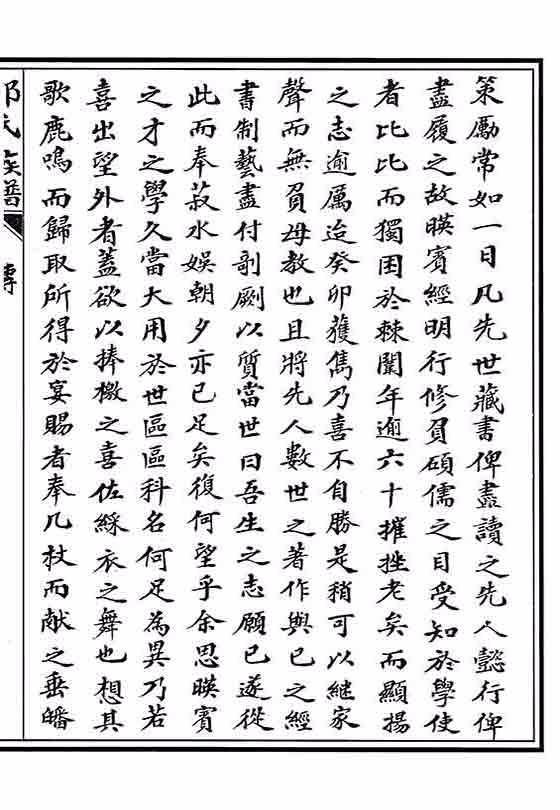 策勵常如一日凡先世藏書俾盡讀之先人懿行俾
盡履之故暎賓經明行修負碩儒之目受知於學使
者比比而獨困於棘闈年逾六十摧挫老矣而顯揚
之志逾厲迨癸卯獲雋乃喜不自勝是稍可以継家
聲而無負母教也且將先人數世之著作與己之經
書制藝盡付剞劂以質當世曰吾生之志願已遂從
此而奉菽水娛朝夕亦已足矣復何望乎余思暎賓
之才之學久當大用於世區區科名何足為異乃若
喜出望外者蓋欲以捧檄之喜佐綵衣之舞也想其
歌鹿鳴而歸取所得於宴賜者奉几杖而献之垂皤
氏族譜
傳